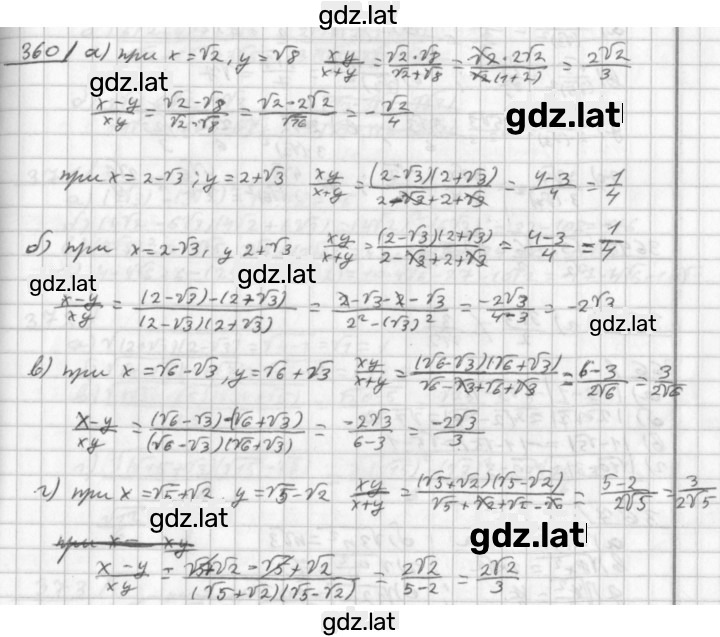 gdz.lat
360/ а) при x = √2, y = √8 xy/(x+y) = (√2·√8)/(√2+√8) = (√2·2√2)/(√2(1+2)) = 2√2/3
gdz.lat
(x−y)/xy = (√2−√8)/(√2·√8) = (√2−2√2)/√16 = −√2/4
gdz.lat
при x = 2−√3; y = 2+√3 xy/(x+y) = ((2−√3)(2+√3))/(2−√3+2+√3) = (4−3)/4 = 1/4
б) при x = 2−√3, y 2+√3 xy/(x+y) = ((2−√3)(2+√3))/(2−√3+2+√3) = (4−3)/4 = 1/4
gdz.lat
gdz.lat
(x−y)/xy = ((2−√3)−(2+√3))/((2−√3)(2+√3)) = (2−√3−2−√3)/(2²−(√3)²) = −2√3/(4−3) = −2√3
gdz.lat
в) при x = √6−√3, y = √6+√3 xy/(x+y) = ((√6−√3)(√6+√3))/(√6−√3+√6+√3) = (6−3)/2√6 = 3/2√6
(x−y)/xy = ((√6−√3)−(√6+√3))/((√6−√3)(√6+√3)) = −2√3/(6−3) = −2√3/3
г) при x = √5+√2. y = √5−√2 xy/(x+y) = ((√5+√2)(√5−√2))/(√5+√2+√5−√2) = (5−2)/2√5 = 3/2√5
gdz.lat
при x = xy
gdz.lat
(x−y)/xy = (√5+√2−√5+√2)/((√5+√2)(√5−√2)) = 2√2/(5−2) = 2√2/3
gdz.lat